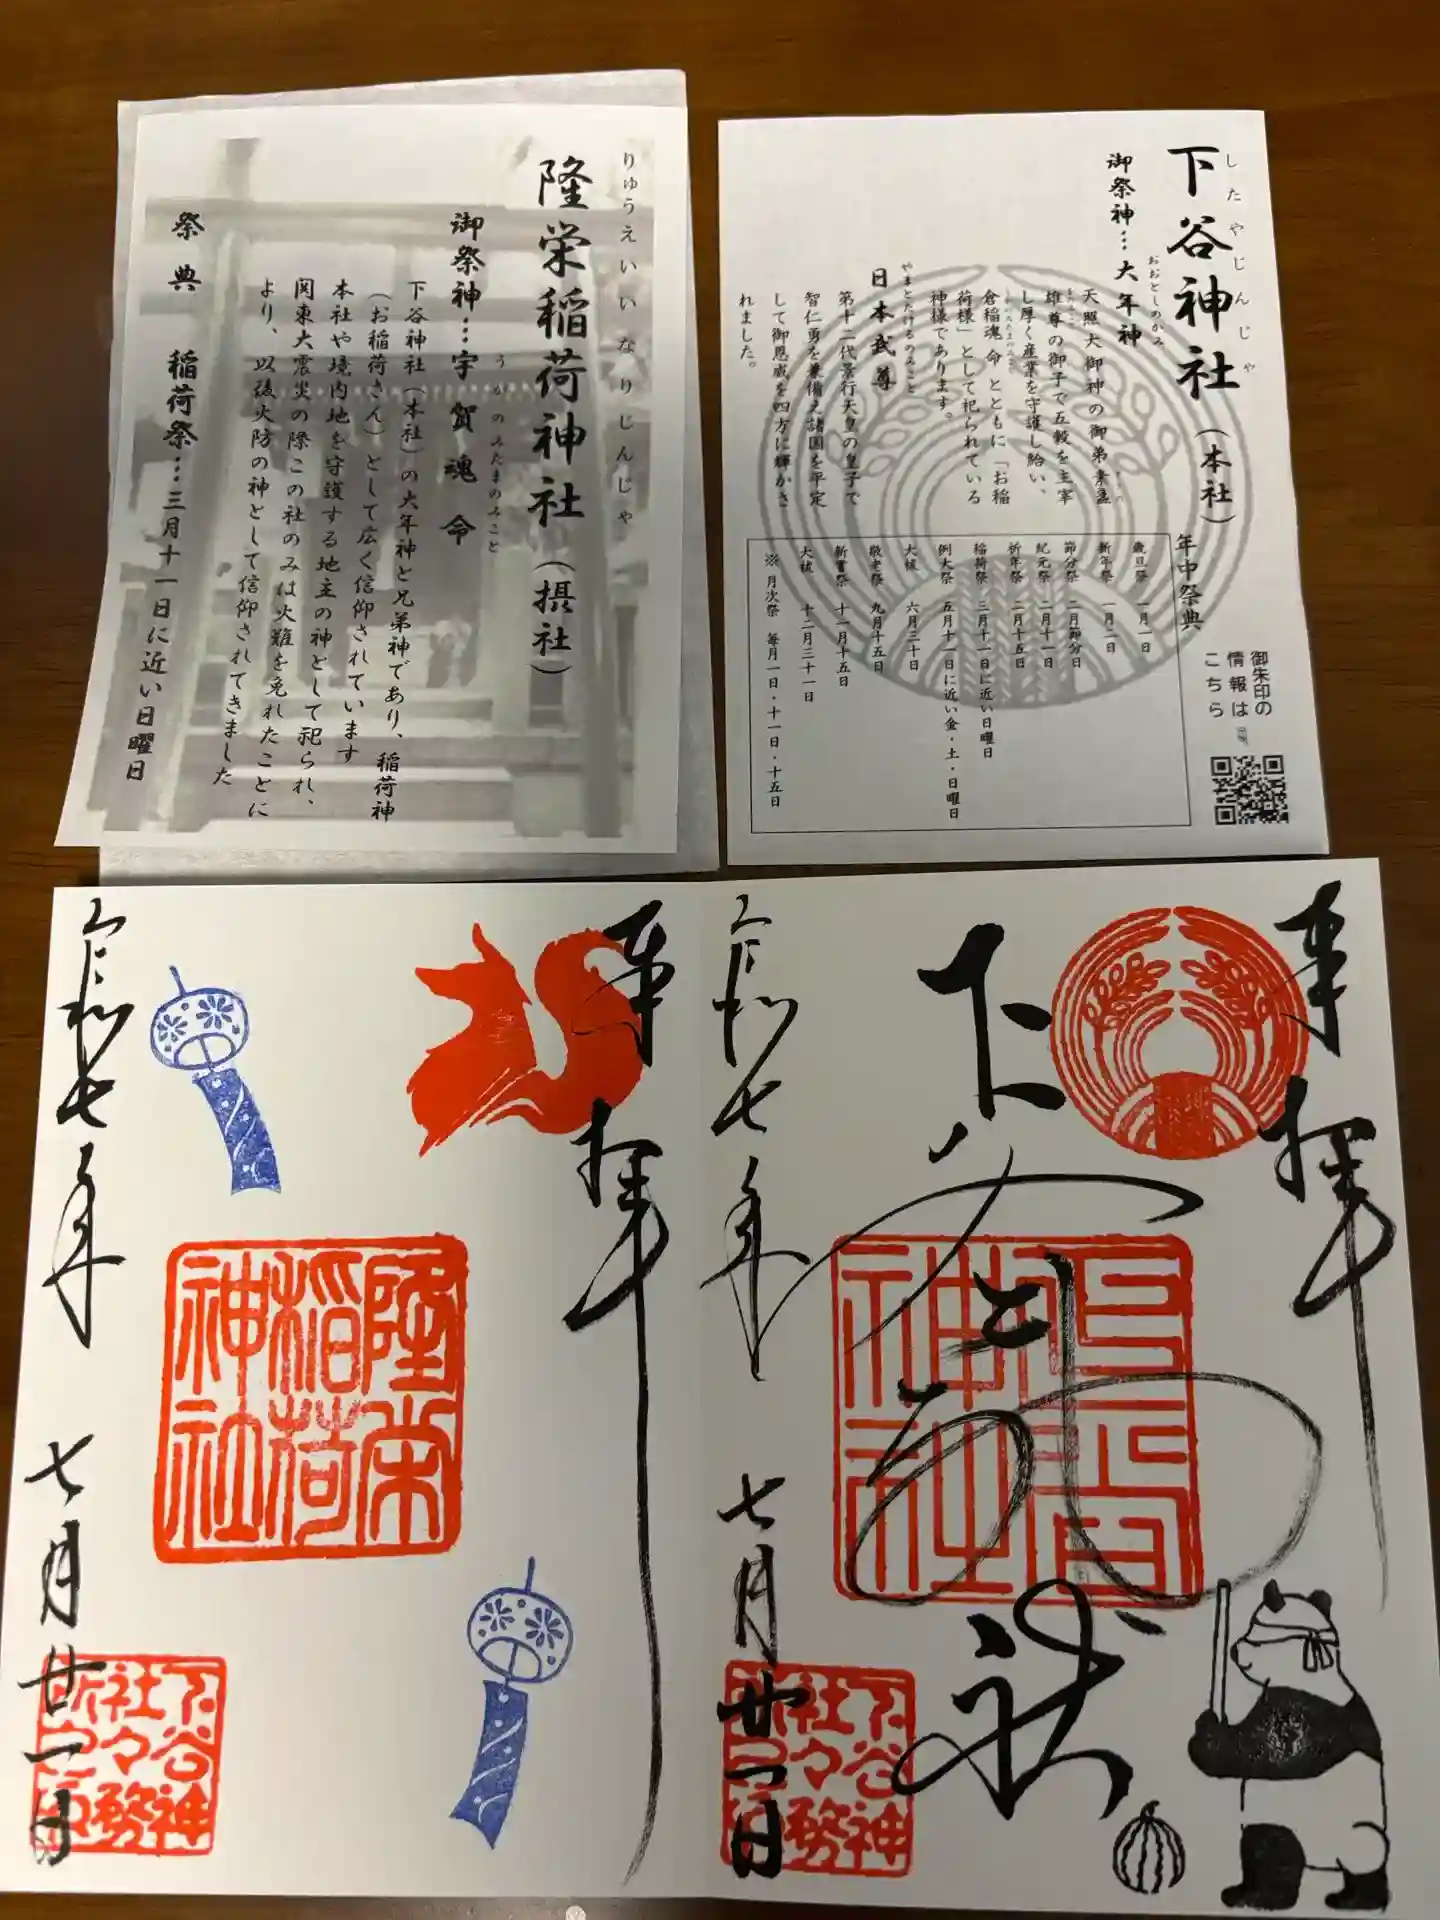 下谷神社（本社）
したやじんじゃ
御祭神…大年神
おおとしのかみ
天照大御神の御弟素盞
雄尊の御子で五穀を主宰
し厚く産業を守護し給い、
倉稲魂命とともに「お稲
荷様」として祀られている
神様であります。
日本武尊
やまとたけるのみこと
第十二代景行天皇の皇子で
智仁勇を兼備え諸国を平定
して御恩威を四方に輝かさ
れました。
年中祭典
歳旦祭 一月一日
新年祭 一月二日
節分祭 二月節分日
紀元祭 二月十一日
祈年祭 二月十五日
稲荷祭 三月十一日に近い日曜日
例大祭 五月十一日に近い金・土・日曜日
大祓 六月三十日
敬老祭 九月十五日
新嘗祭 十一月十五日
大祓 十二月三十一日
※月次祭 毎月一日・十一日・十五日
御朱印の
情報は
こちら
隆栄稲荷神社（摂社）
りゅうえいいなりじんじゃ
御祭神…宇賀魂命
うかのみたまのみこと
下谷神社（本社）の大年神と兄弟神であり、稲荷神
（お稲荷さん）として広く信仰されています
本社や境内地を守護する地主の神として祀られ、
関東大震災の際この社のみは火難を免れたことに
より、以後火防の神として信仰されてきました
祭典 稲荷祭…三月十一日に近い日曜日
奉拝
下谷神社
下谷神社
令和七年 七月廿一日
下谷神
社々務
所之印
奉拝
隆栄
稲荷
神社
令和七年 七月廿一日
下谷神
社々務
所之印